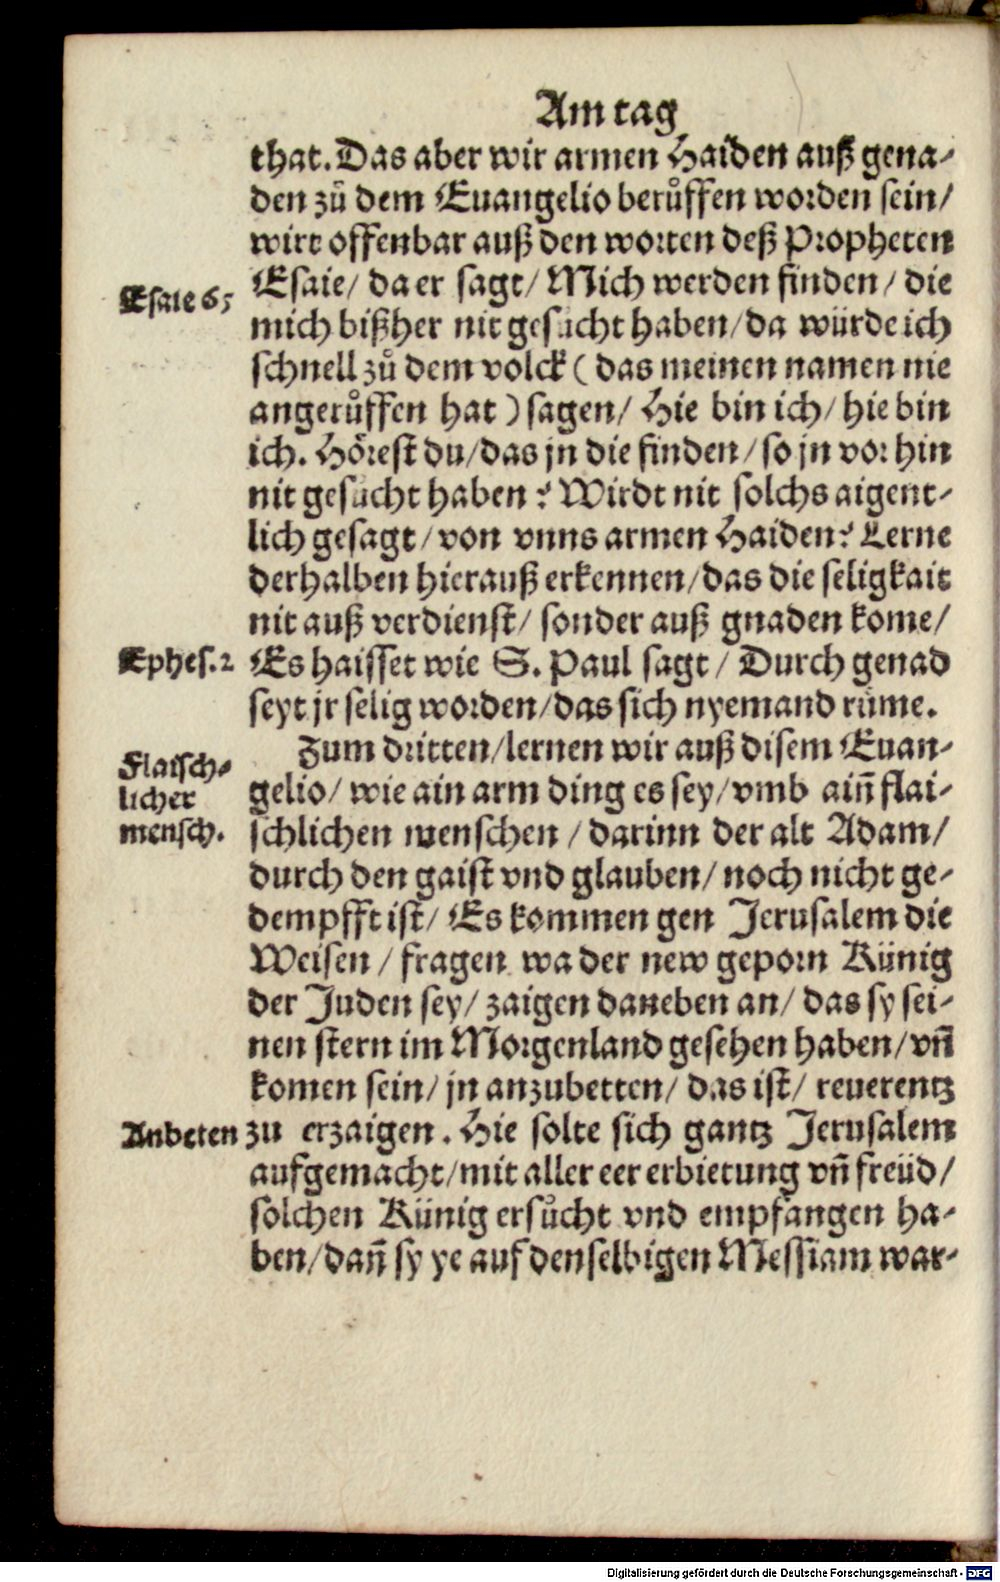 Am tag
that. Das aber wir armen Haiden auß gena-
den zů dem Euangelio berůffen worden sein/
wirt offenbar auß den worten deß Propheten
Esaie 65
Esaie/ da er sagt/ Mich werden finden/ die
mich bißher nit gesůcht haben/ da würde ich
schnell zů dem volck (das meinen namen nie
angerůffen hat) sagen/ Hie bin ich/ hie bin
ich. Hörest du/ das jn die finden/ so jn vor hin
nit gesůcht haben? Wirdt nit solchs aigent-
lich gesagt/ von vnns armen Haiden? Lerne
derhalben hierauß erkennen/ das die seligkait
nit auß verdienst/ sonder auß gnaden kome/
Ephes. 2
Es haisset wie S. Paul sagt/ Durch genad
seyt jr selig worden/ das sich nyemand rüme.
Zum dritten/ lernen wir auß disem Euan-
Flaisch-
licher
mensch.
gelio/ wie ain arm ding es sey/ vmb ain̄ flai-
schlichen menschen/ darinn der alt Adam/
durch den gaist vnd glauben/ noch nicht ge-
dempfft ist/ Es kommen gen Jerusalem die
Weisen/ fragen wa der new geporn Künig
der Juden sey/ zaigen daneben an/ das sy sei-
nen stern im Morgenland gesehen haben/ vn̄
komen sein/ jn anzubetten/ das ist/ reuerentz
Anbeten
zu erzaigen. Hie solte sich gantz Jerusalem
aufgemacht/ mit aller eer erbietung vn̄ freüd/
solchen Künig ersůcht vnd empfangen ha-
ben/ dan̄ sy ye auf denselbigen Messiam war-
Digitalisierung gefördert durch die Deutsche Forschungsgemeinschaft - DFG